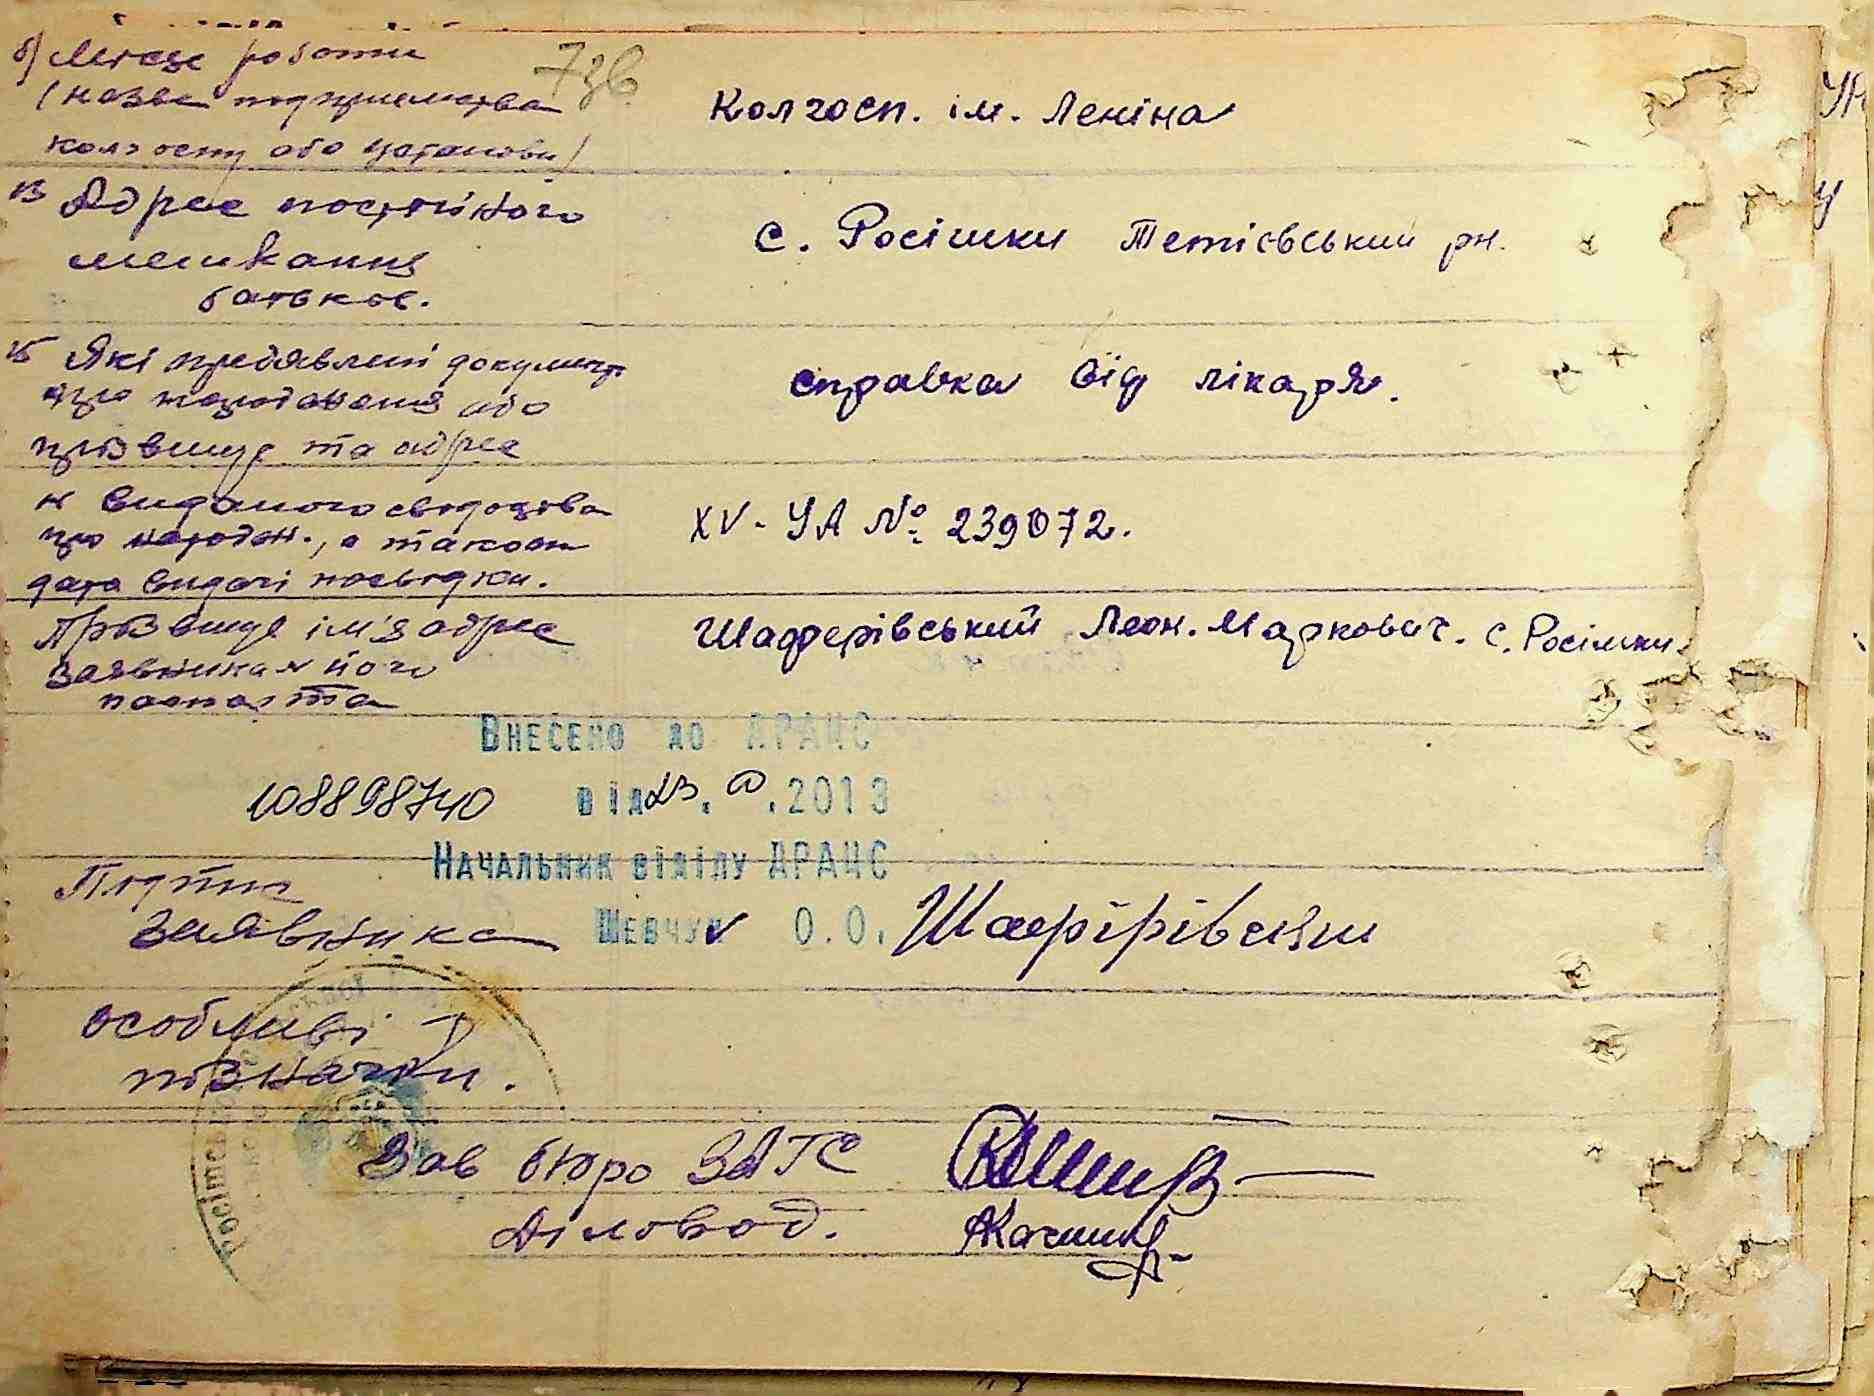 б) Місце роботи
7 зв.
(назва подприемства
колгоспу або установи)
Колгосп. ім. Леніна
13 Адреса постійного
мешкання
батьков.
с. Росішки Тетієвський рн.
15 Які предявлені документ.
про народження або
прізвище та адреса
справка від лікаря.
N виданого свідоцтва
про народж., а також
дата видачі посвідки.
XV - УА № 239072.
Прізвище ім'я адреса
заявника й його
паспорта
Шаферівський Леон. Маркович. с. Росішки.
Внесено до ДРАЦС
108898740 від 23. .2013
Начальник відділу ДРАЦС
Підпис
заявника
Шевчук О.О.
Шафірівський
Особливі
позначки.
Зав бюро ЗАГС
Діловод.